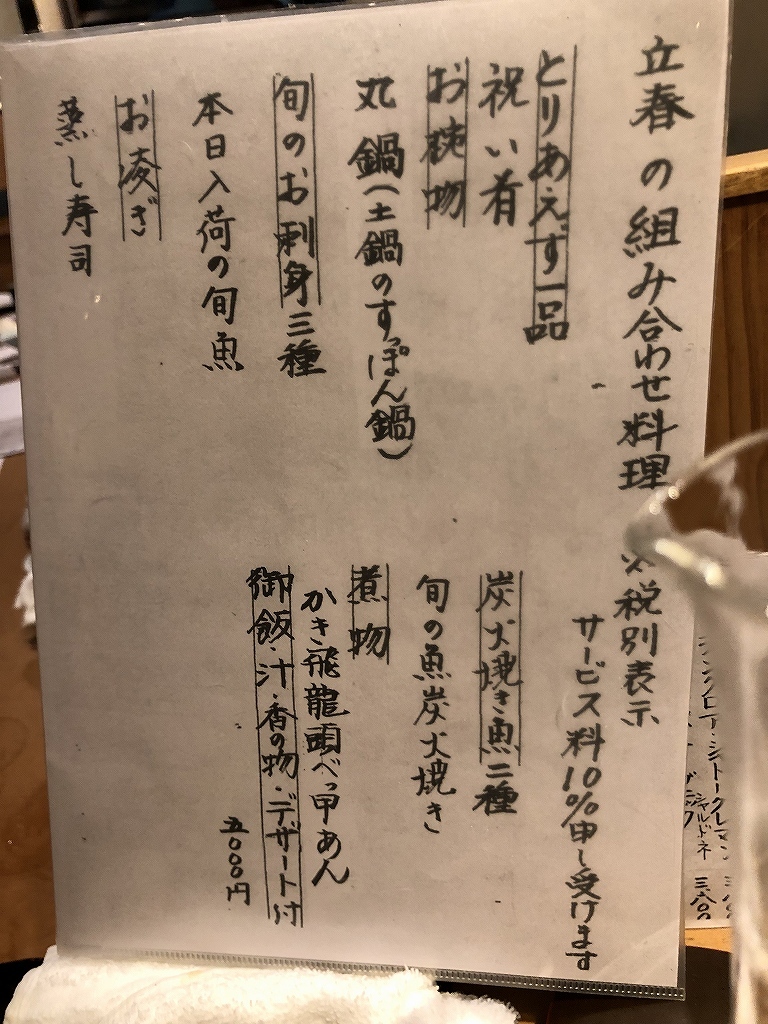 立春の組み合わせ料理
税別表示
サービス料10%申し受けます
とりあえず一品
祝い肴
お椀物
丸鍋(土鍋のすっぽん鍋)
旬のお刺身三種
本日入荷の旬魚
お凌ぎ
蒸し寿司
炭火焼き魚二種
旬の魚炭火焼き
煮物
かき飛龍頭べっ甲あん
御飯・汁・香の物・デザート付
五〇〇〇円
シャルドネ